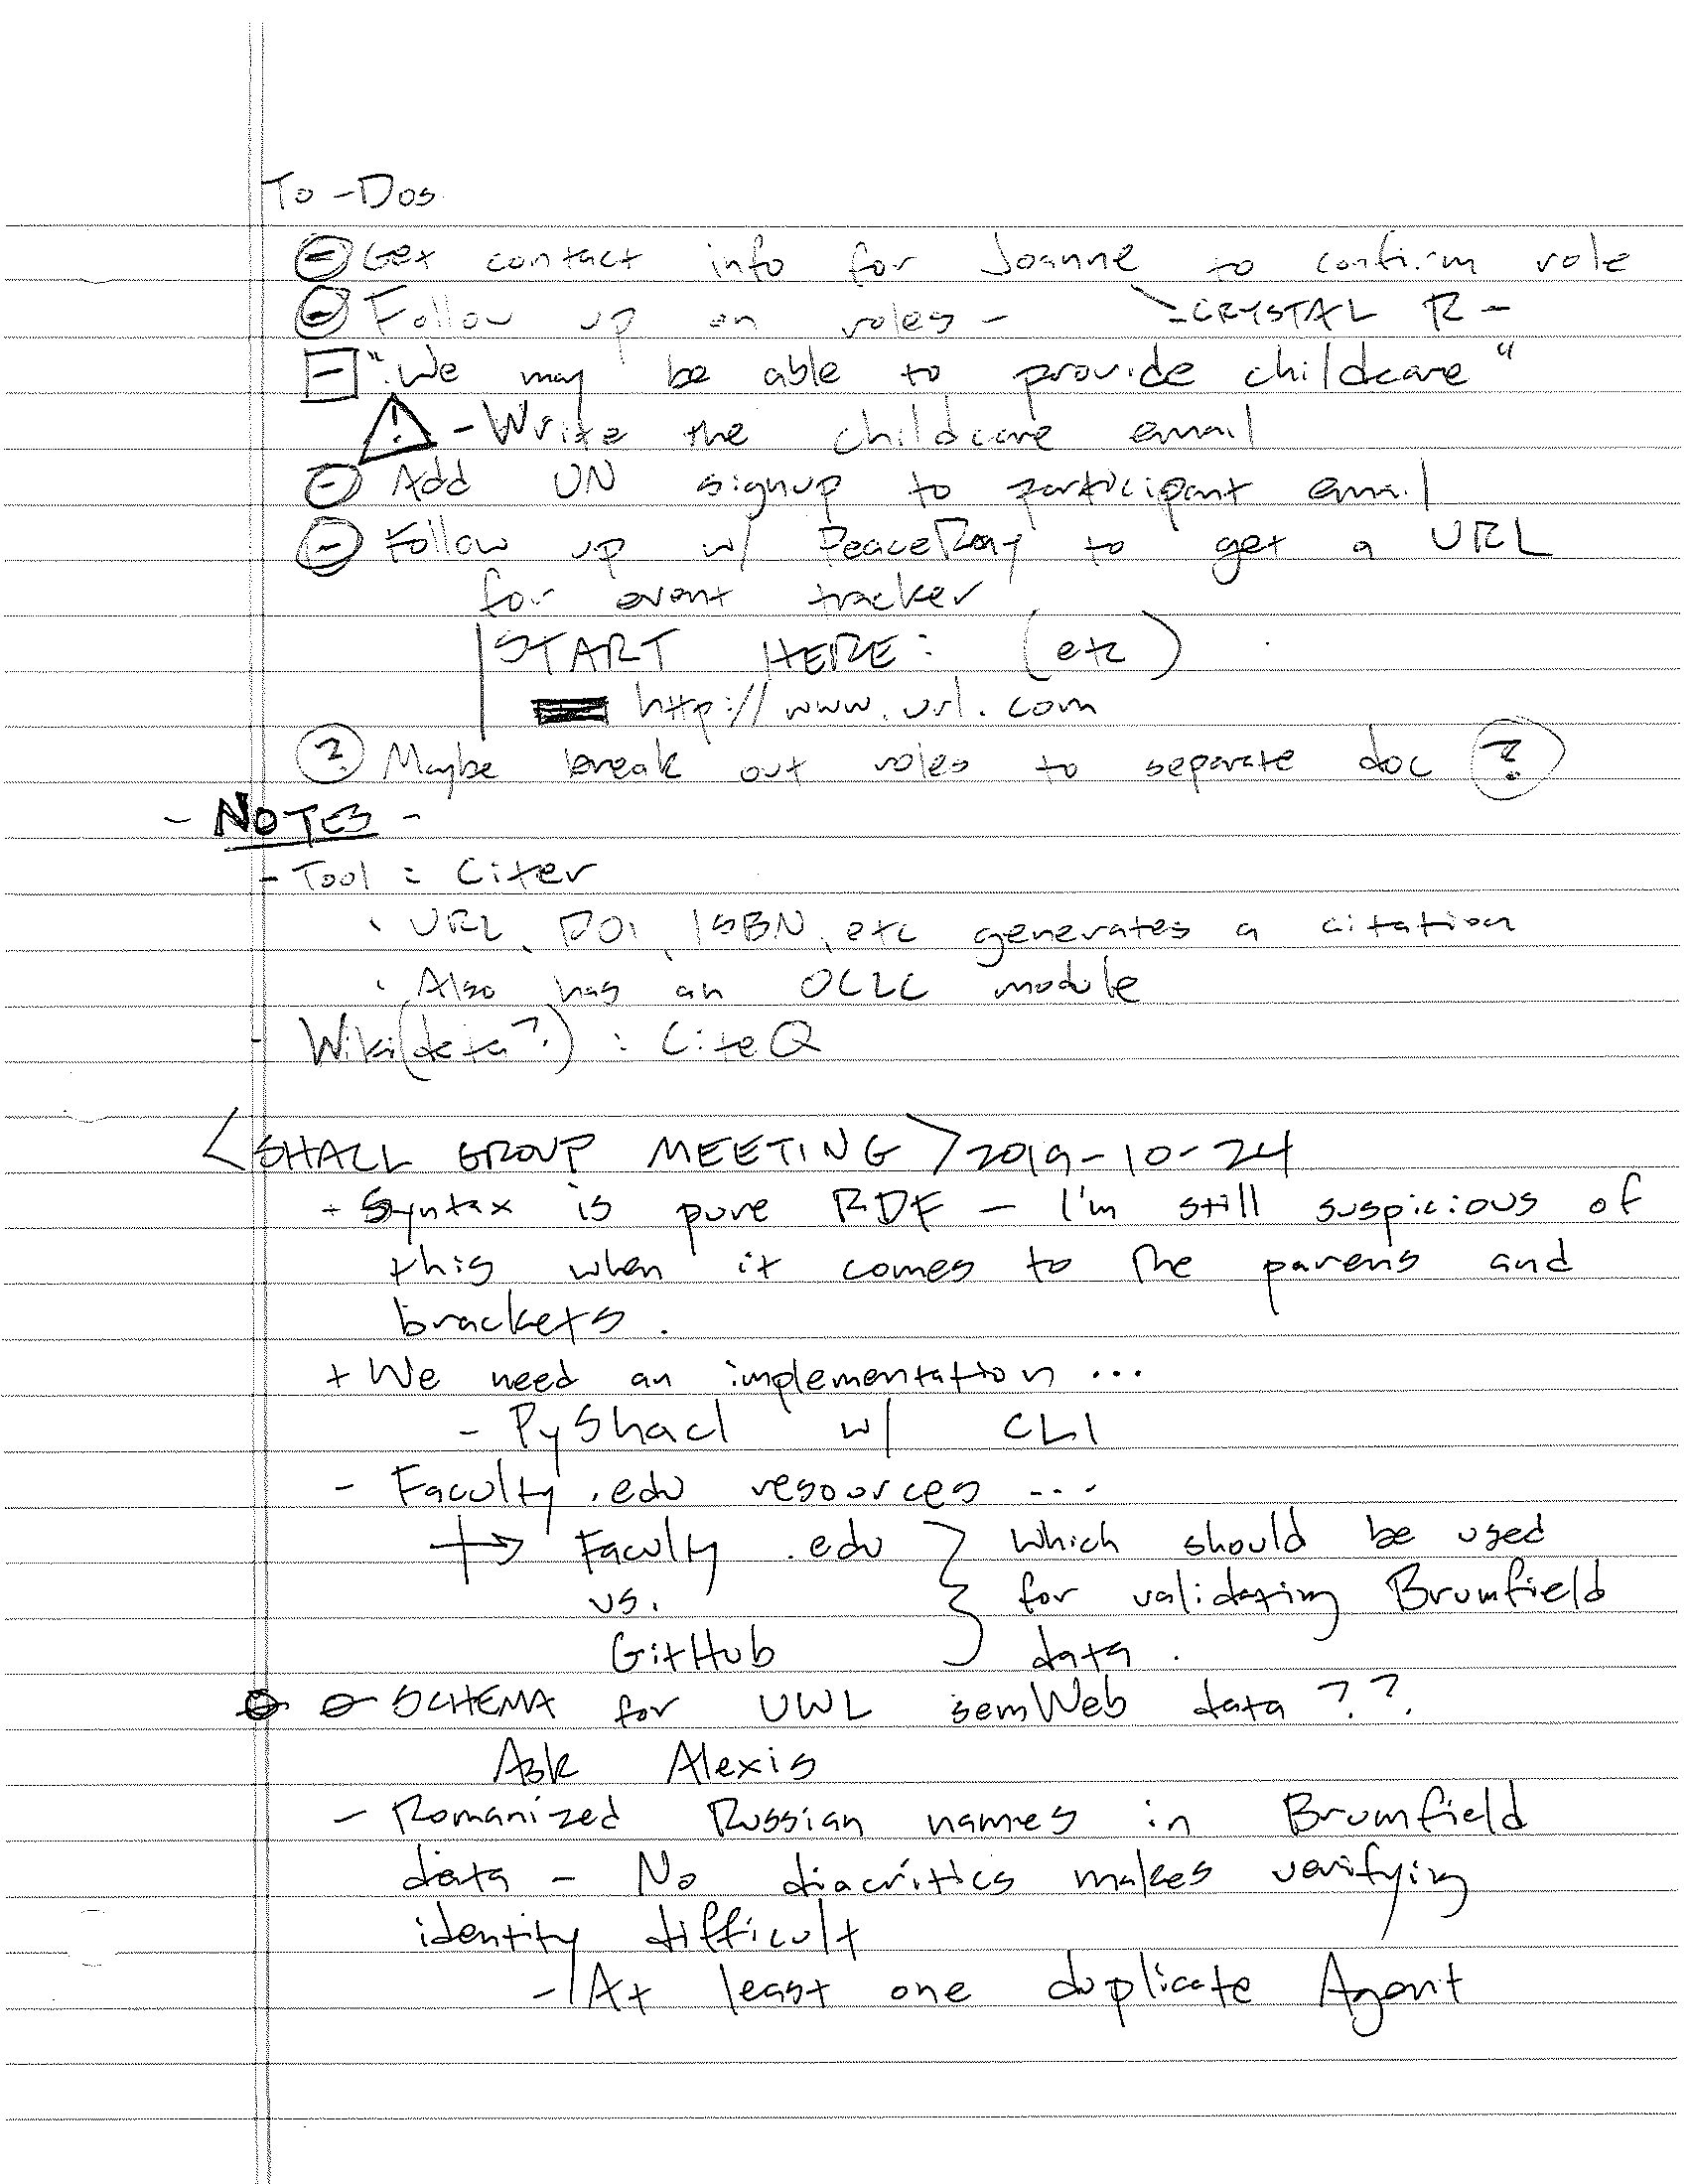 To-Dos
- Get contact info for Joanne to confirm role
- Follow up on roles - - CRYSTAL R -
- "We may be able to provide childcare"
! - Write the childcare email
- Add UN signup to participant email
- Follow up w/ PeaceRay to get a URL
for event tracker
START HERE: (etc)
http://www.url.com
? Maybe break out roles to separate doc ?
- NOTES -
- Tool : Citer
· URL, DOI, ISBN, etc generates a citation
· Also has an OCLC module
- Wiki(data?) : CiteQ
<SHACL GROUP MEETING> 2019-10-24
+ Syntax is pure RDF - I'm still suspicious of
this when it comes to the parens and
brackets.
+ We need an implementation ...
- PyShacl w/ CLI
- Faculty.edu resources ...
→ Faculty.edu } Which should be used
vs. for validating Brumfield
GitHub data.
- SCHEMA for UWL semWeb data??
Ask Alexis
- Romanized Russian names in Brumfield
data - No diacritics makes verifying
identity difficult
- At least one duplicate Agent